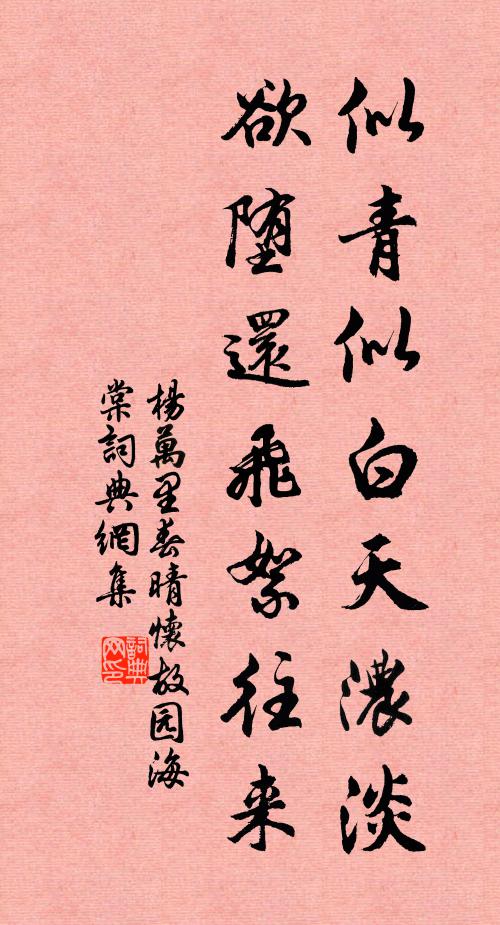 似青似白天濃淡
欲堕還飛絮往来
楊萬里春晴懷故园海
棠詞典網集
詞典
网印